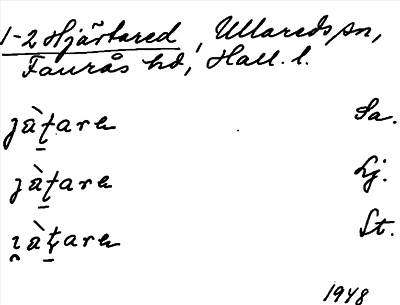 1-2 Hjärtared, Ullareds sn,
Faurås hd, Hall. l.
jà̀t̠area Sa.
jà̀t̠area Lj.
ı̯à̀t̠area St.
1948